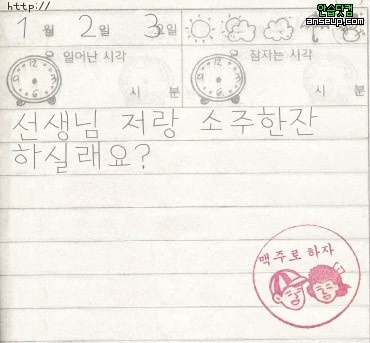 http://
안습닷컴
anseup.com
1 월 2 일 3 요일
일어난 시각
잠자는 시각
시 분
시 분
선생님 저랑 소주한잔
하실래요?
맥주로 하자